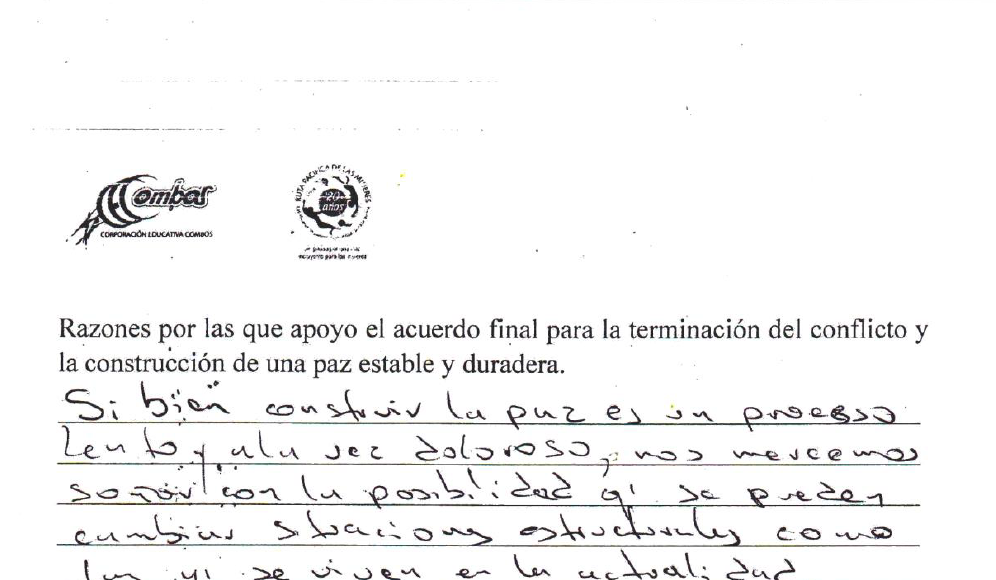 Combos
CORPORACIÓN EDUCATIVA COMBOS
RUTA PACÍFICA DE LAS MUJERES
20 años
Razones por las que apoyo el acuerdo final para la terminación del conflicto y
la construcción de una paz estable y duradera.
Si bien construir la paz es un proceso
Lento y a la vez doloroso, nos mercemos
soñar con la posibilidad q' se pueden
cambiar situaciones estructurales como
las q' se viven en la actualidad